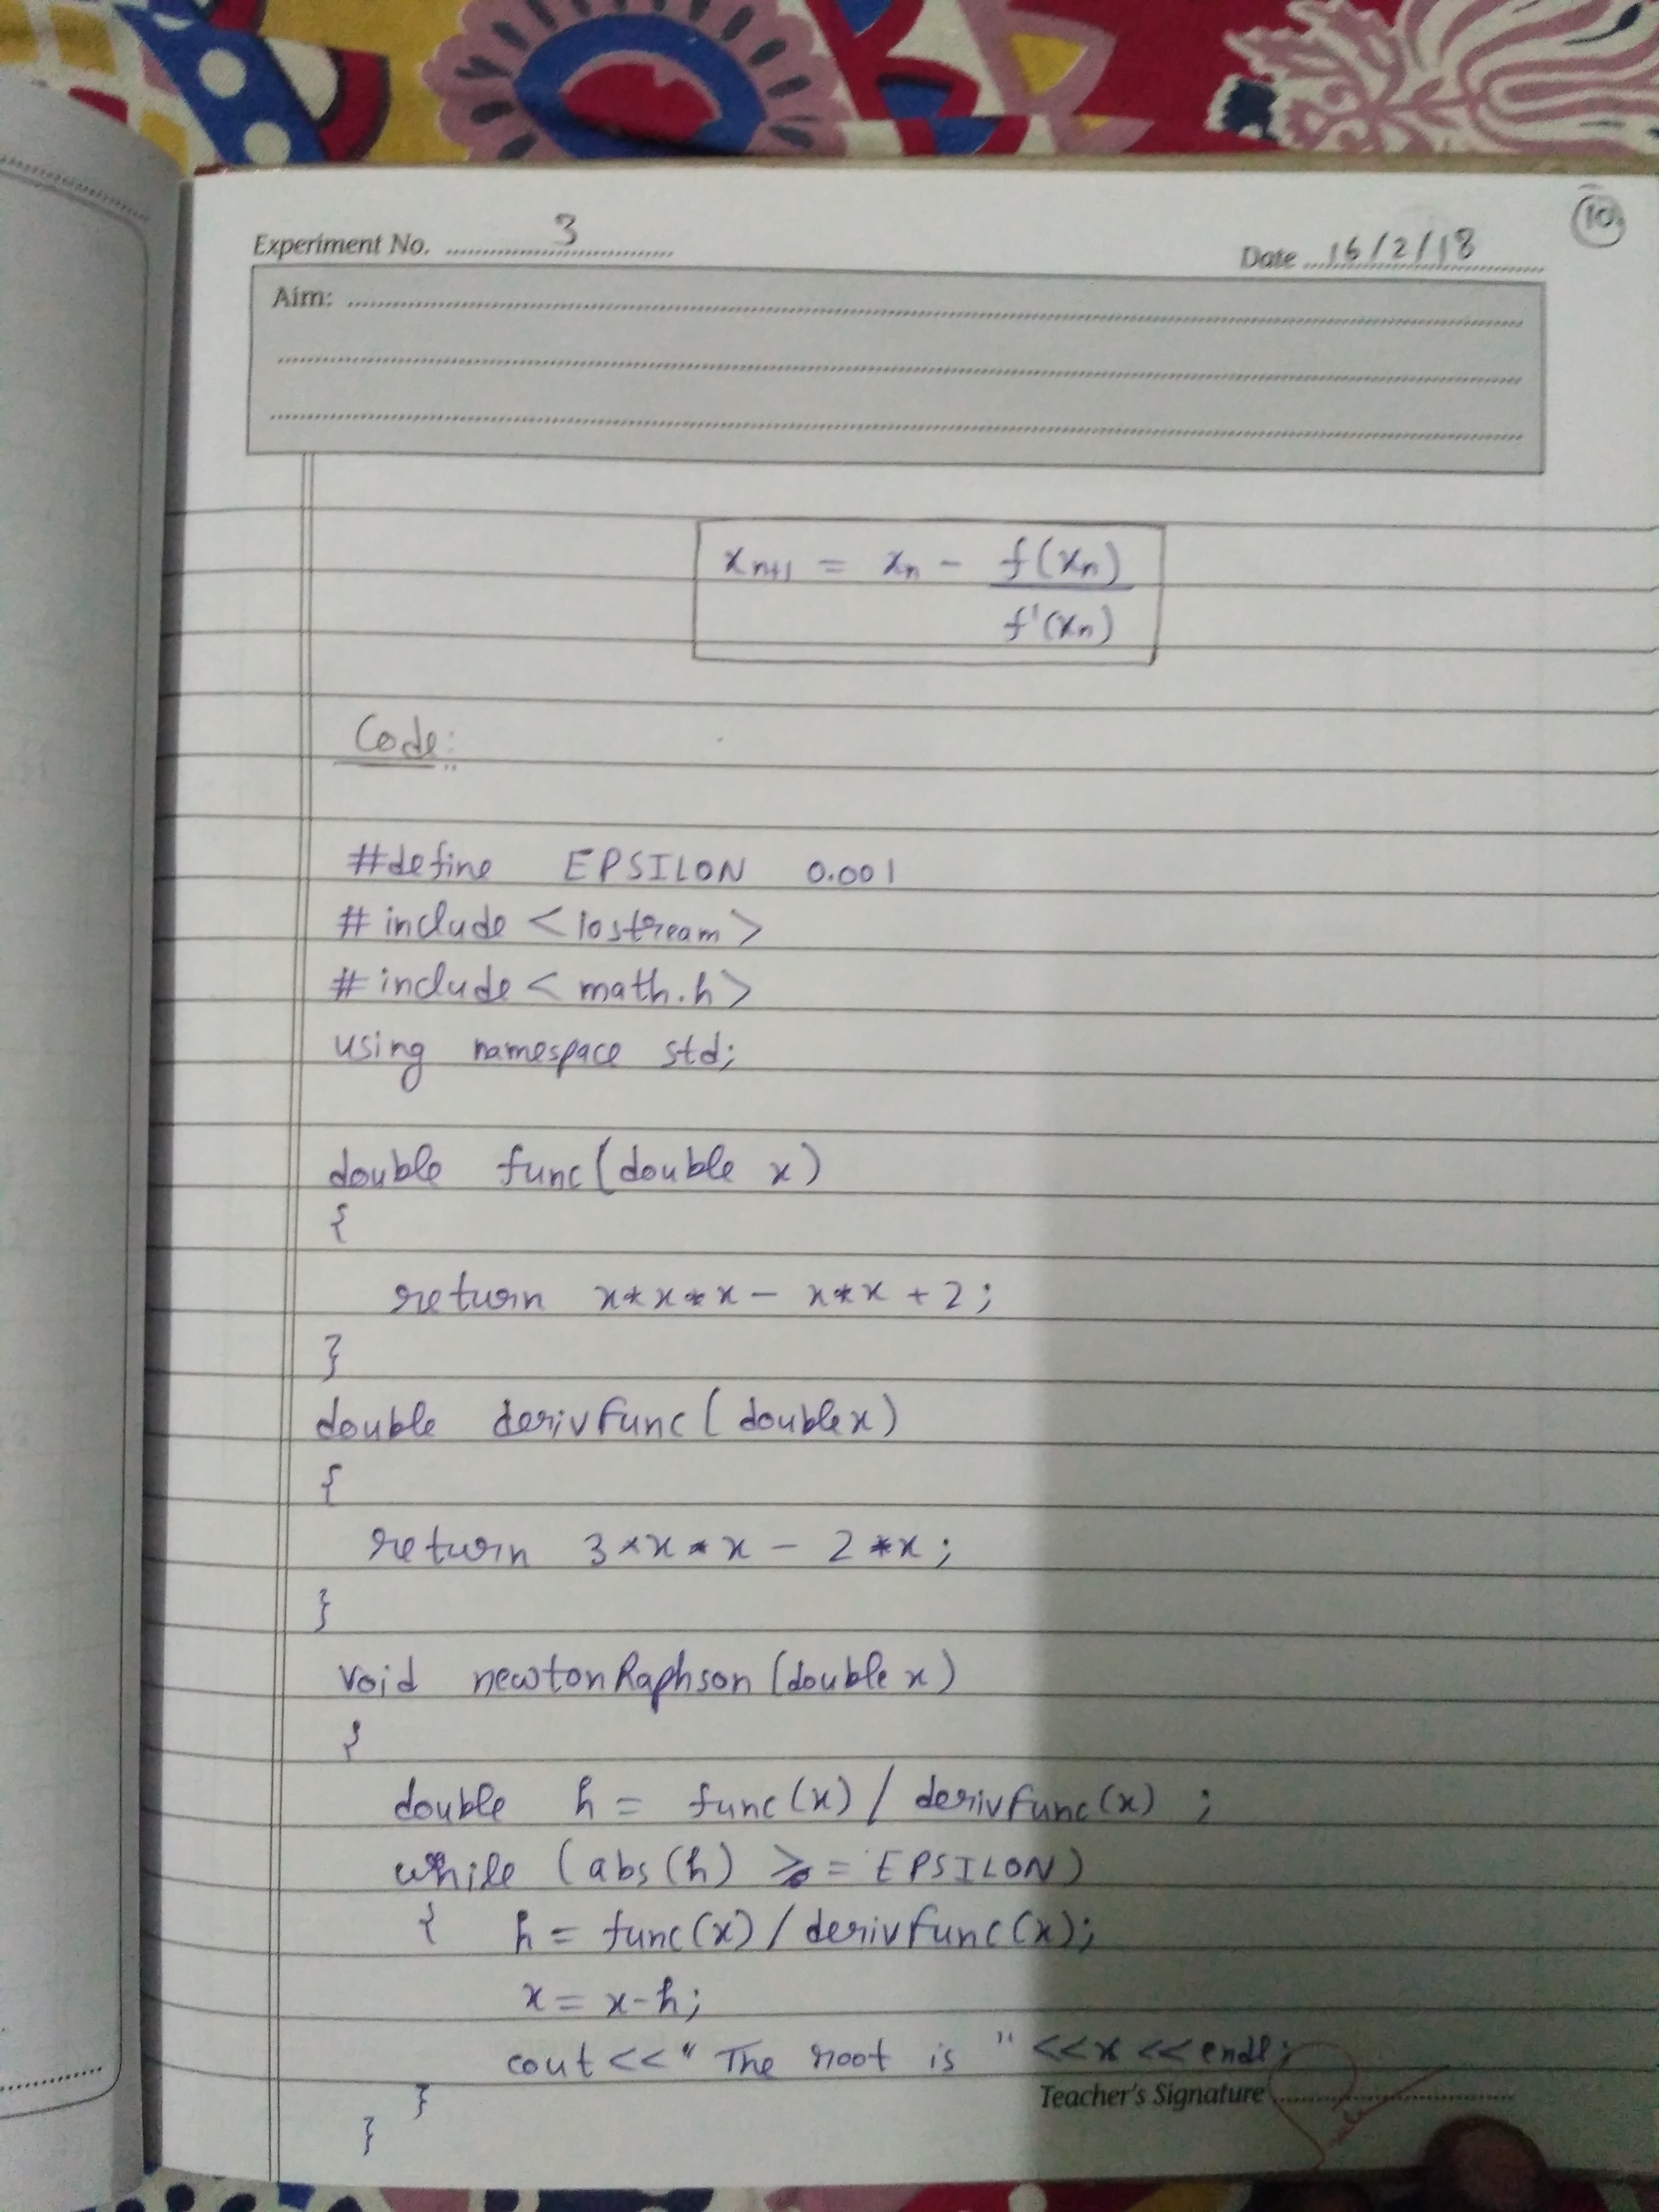 10
Experiment No. 3
Date 16/2/18
Aim:
x_{n+1} = x_n - f(x_n)
f'(x_n)
Code:
#define EPSILON 0.001
# include <iostream>
# include <math.h>
using namespace std;
double func(double x)
{
return x*x*x - x*x + 2;
}
double derivFunc(double x)
{
return 3*x*x - 2*x;
}
void newtonRaphson(double x)
{
double h = func(x) / derivFunc(x) ;
while (abs(h) >= EPSILON)
{ h = func(x) / derivFunc(x);
x = x-h;
cout << " The root is " << x << endl;
Teacher's Signature
}
}